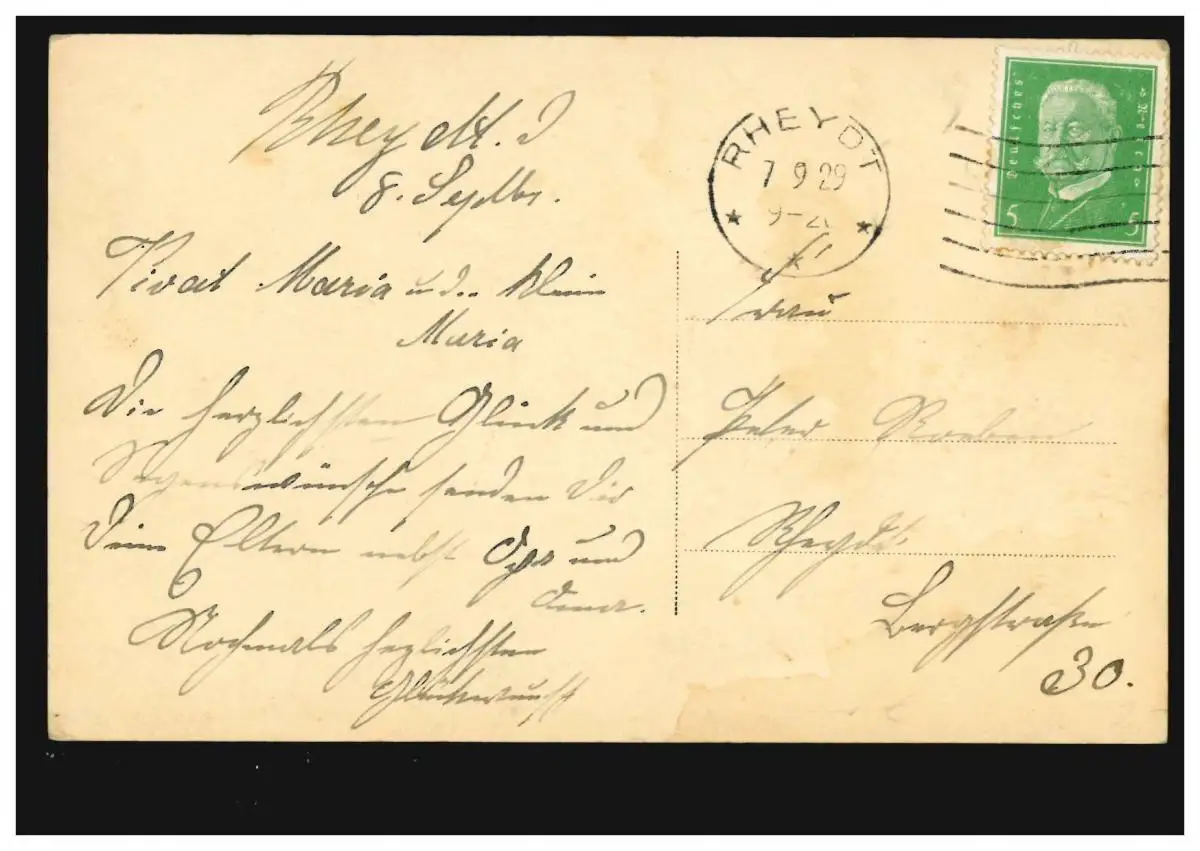 Rheydt. d
8. Septbr.
Vivat Maria und die kleine
Maria
Die herzlichsten Glück und
Segenswünsche senden Dir
Deine Eltern nebst Opa und
Oma.
Nochmals herzlichsten
Glückwunsch
RHEYDT
7 9 29
Deutsches Reich
5 5
Frau
Peter
Rheydt
Bergstraße
30.